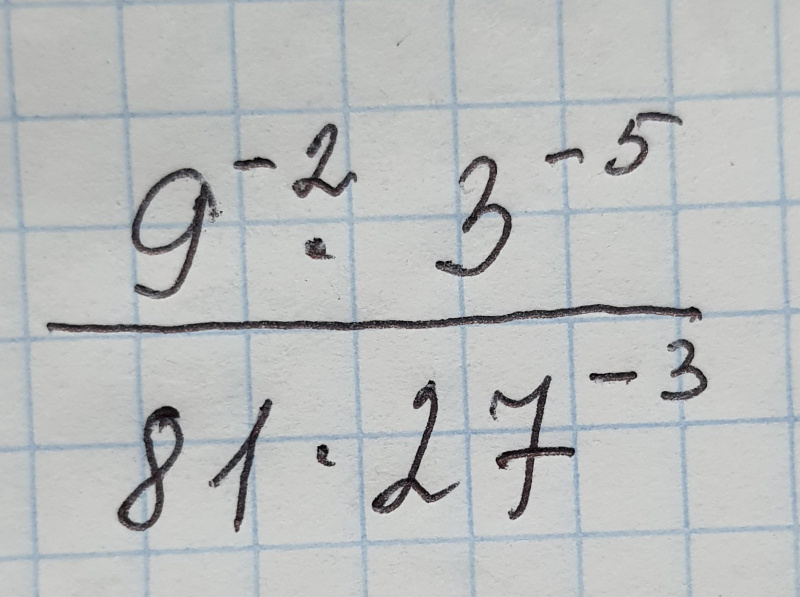 9⁻² · 3⁻⁵
81 · 27⁻³